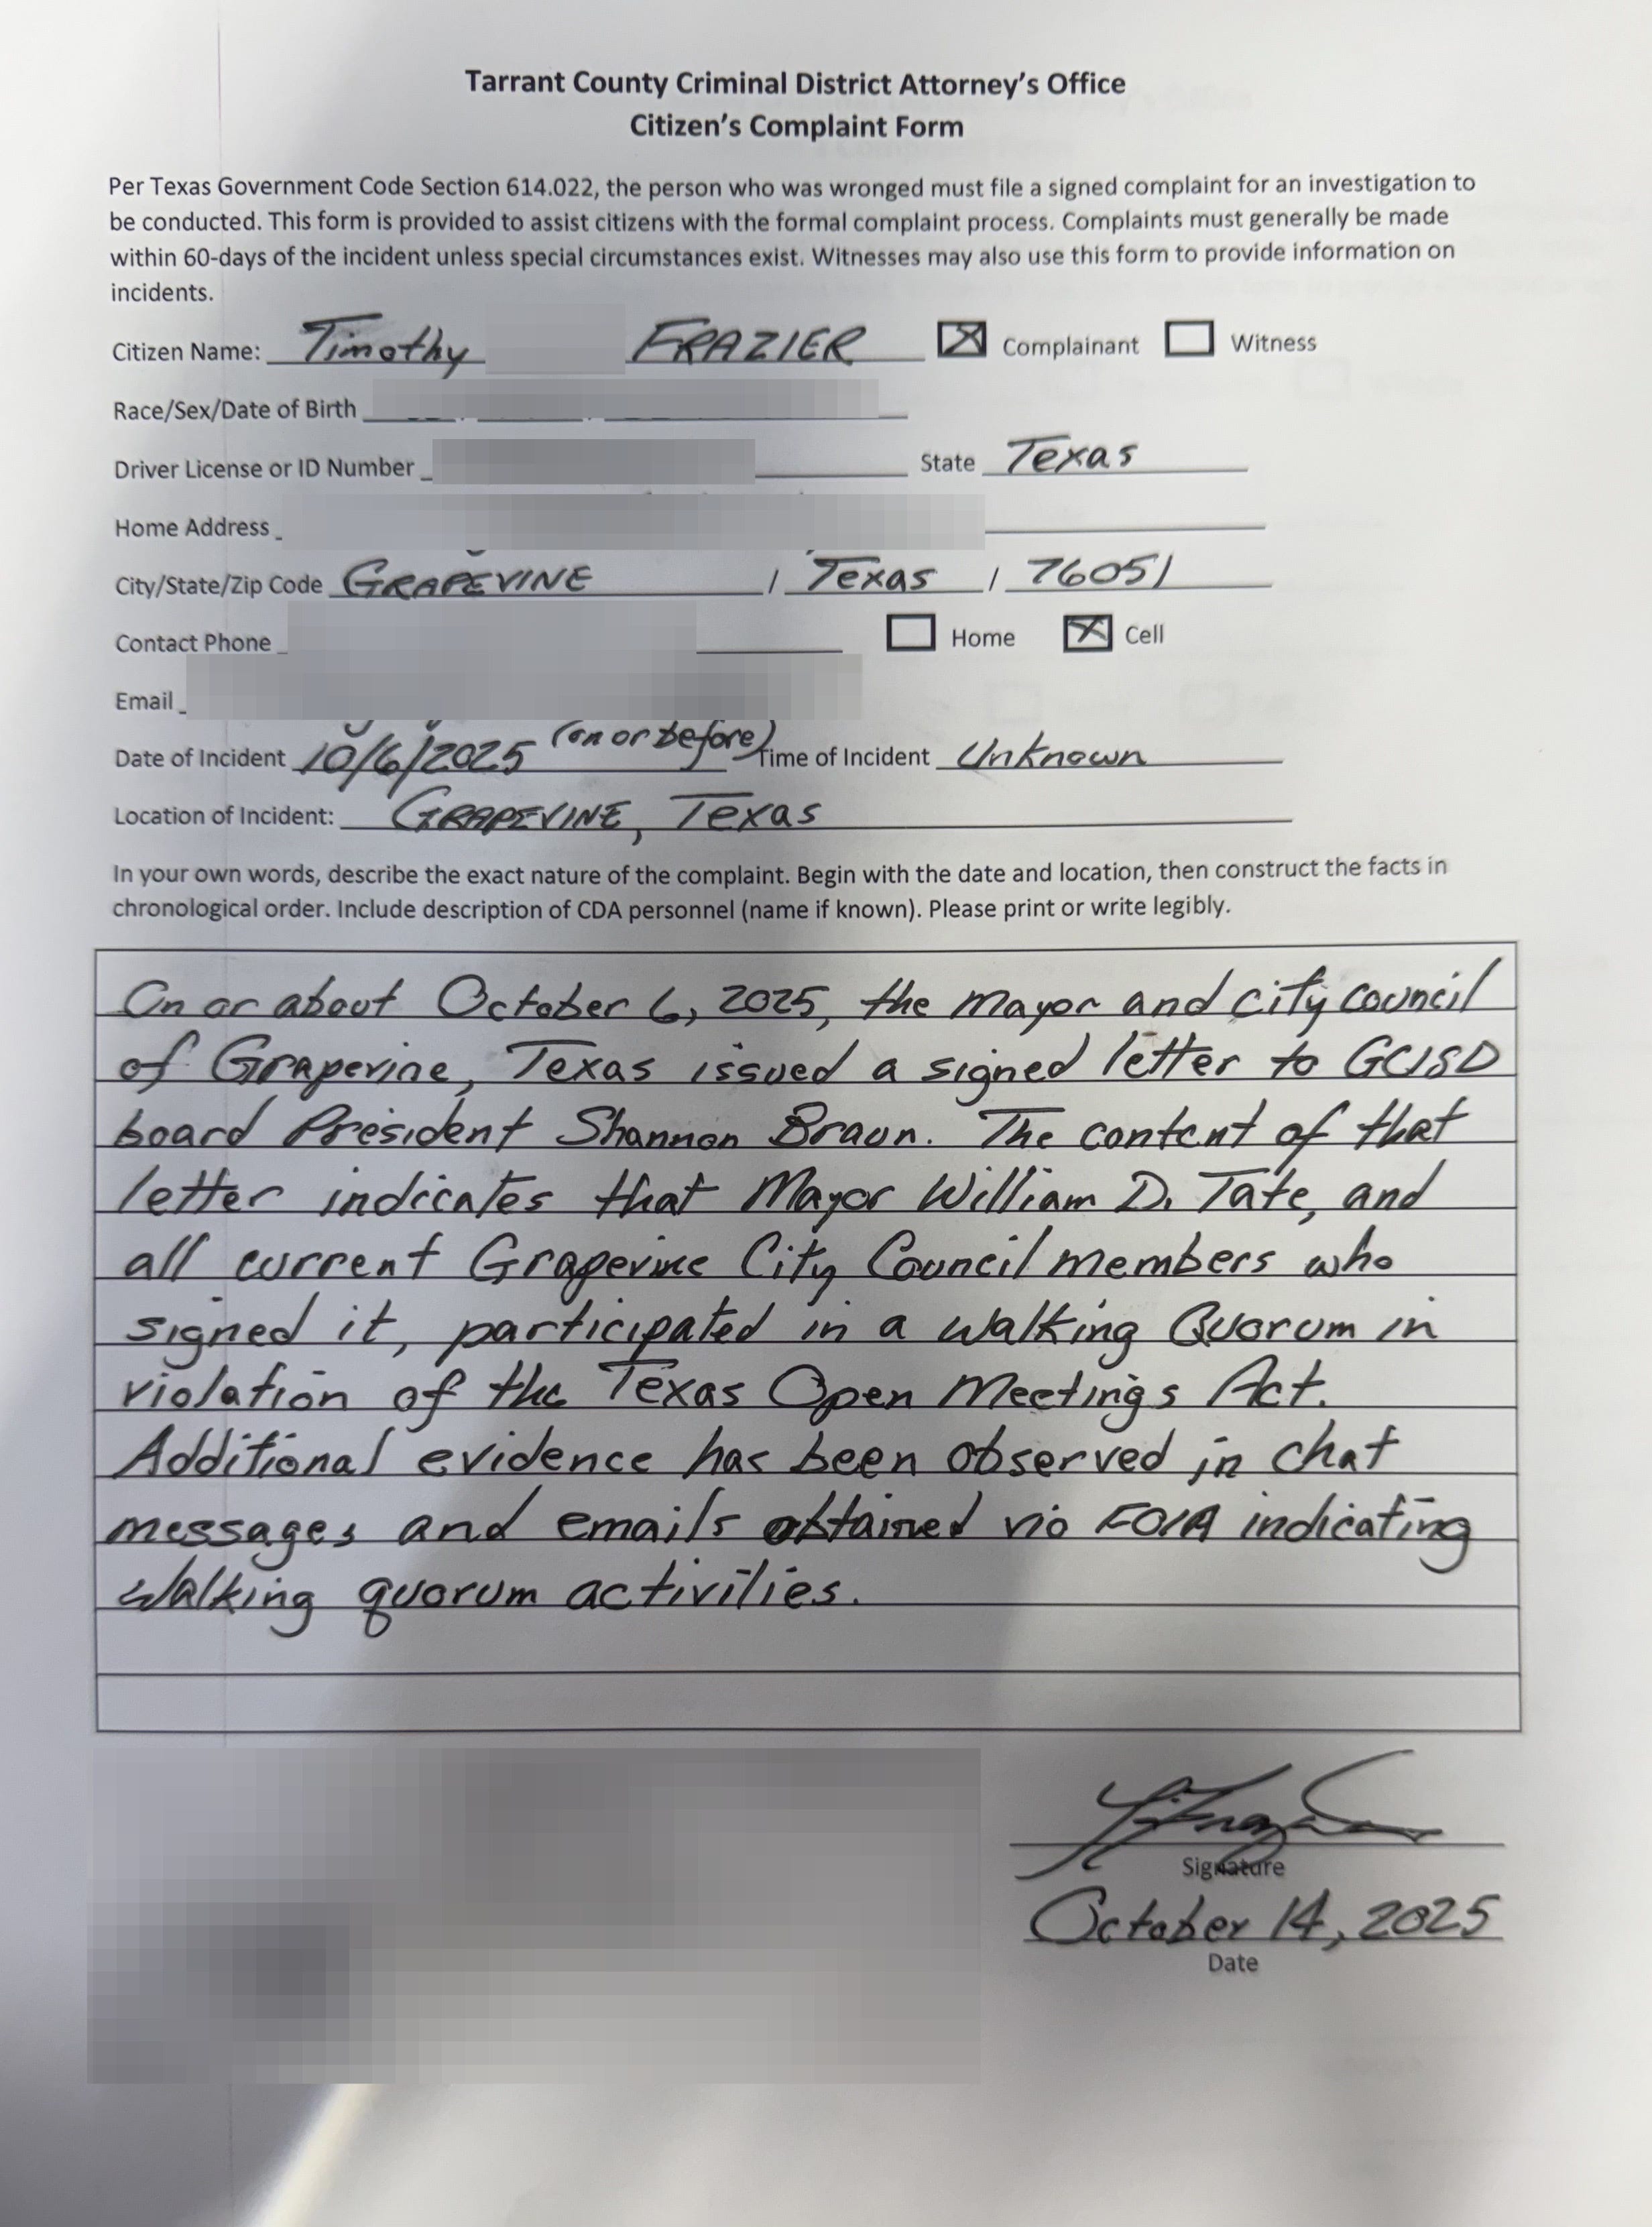 Tarrant County Criminal District Attorney's Office
Citizen's Complaint Form
Per Texas Government Code Section 614.022, the person who was wronged must file a signed complaint for an investigation to
be conducted. This form is provided to assist citizens with the formal complaint process. Complaints must generally be made
within 60-days of the incident unless special circumstances exist. Witnesses may also use this form to provide information on
incidents.
Citizen Name: Timothy FRAZIER Complainant Witness
Race/Sex/Date of Birth
Driver License or ID Number State Texas
Home Address
City/State/Zip Code GRAPEVINE / Texas / 76051
Contact Phone Home Cell
Email
Date of Incident 10/6/2025 (on or before) Time of Incident Unknown
Location of Incident: GRAPEVINE, Texas
In your own words, describe the exact nature of the complaint. Begin with the date and location, then construct the facts in
chronological order. Include description of CDA personnel (name if known). Please print or write legibly.
On or about October 6, 2025, the Mayor and city council
of Grapevine, Texas issued a signed letter to GCISD
board President Shannon Braun. The content of that
letter indicates that Mayor William D. Tate, and
all current Grapevine City Council members who
signed it, participated in a Walking Quorum in
violation of the Texas Open Meetings Act.
Additional evidence has been observed in chat
messages and emails obtained via FOIA indicating
walking quorum activities.
Signature
October 14, 2025
Date